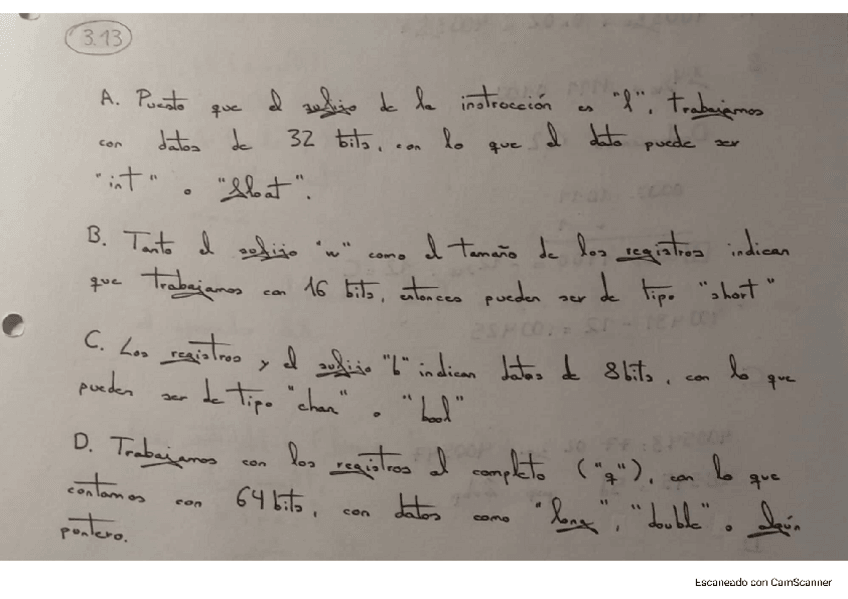 3.13
A. Puesto que el sufijo de la instrucción es "l", trabajamos
con datos de 32 bits, con lo que el dato puede ser
"int" o "float".
B. Tanto el sufijo "w" como el tamaño de los registros indican
que trabajamos con 16 bits, entonces pueden ser de tipo "short"
C. Los registros y el sufijo "b" indican datos de 8 bits, con lo que
pueden ser de tipo "char" o "bool"
D. Trabajamos con los registros al completo ("q"), con lo que
contamos con 64 bits, con datos como "long", "double" o algún
puntero.
Escaneado con CamScanner